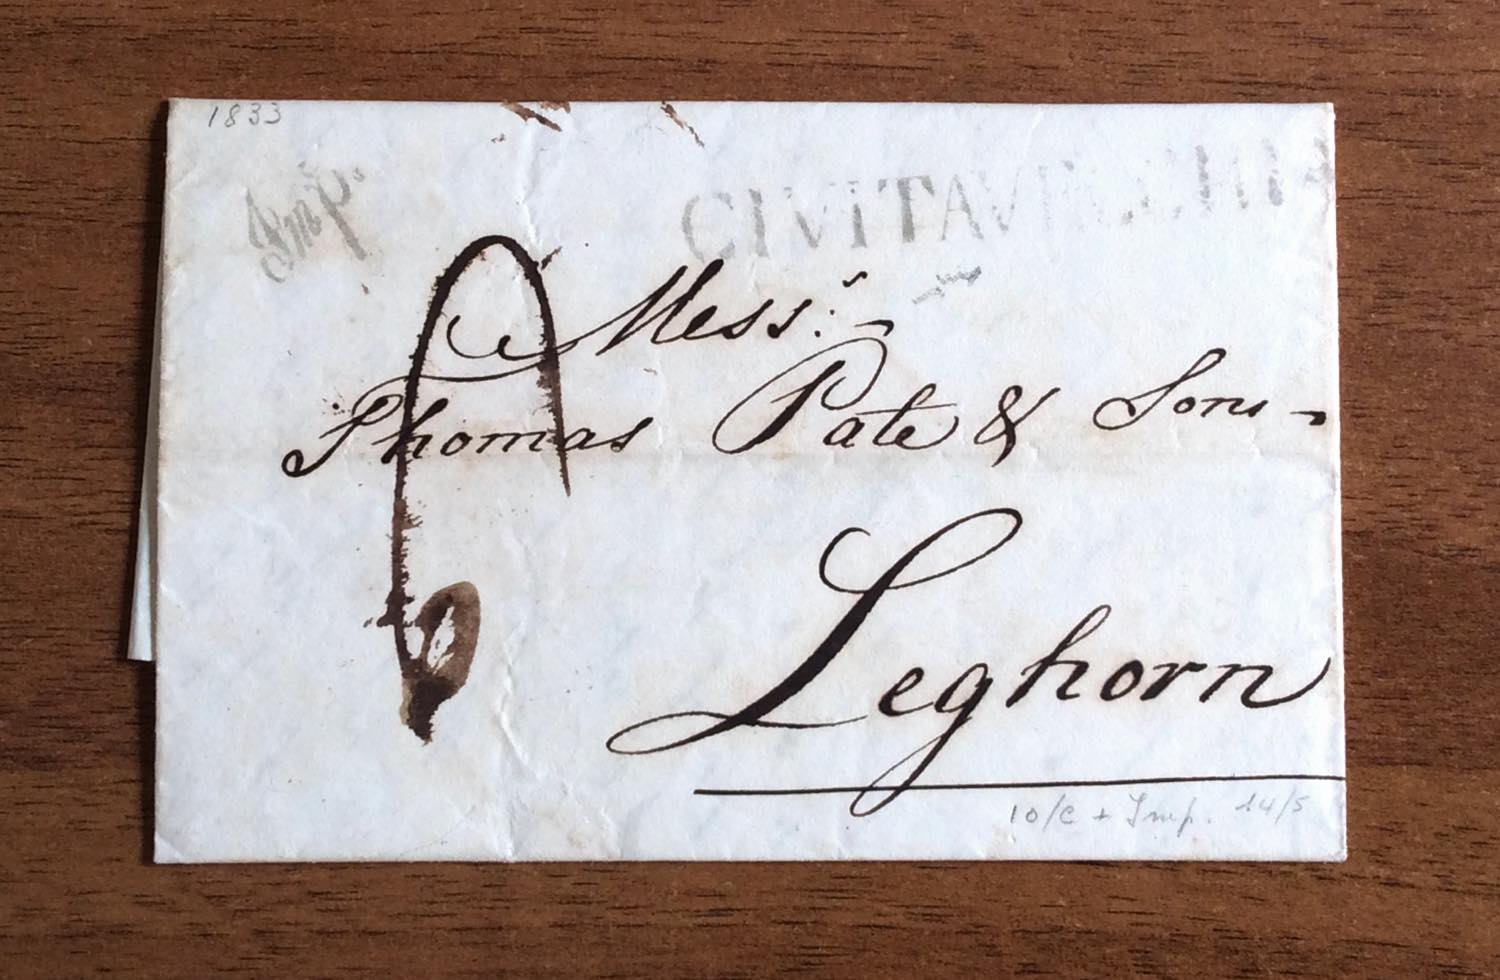 1833
Imp.
CIVITAVECCHIA
Messrs:
Thomas Pate & Sons
Leghorn
10/C + Imp. 14/5